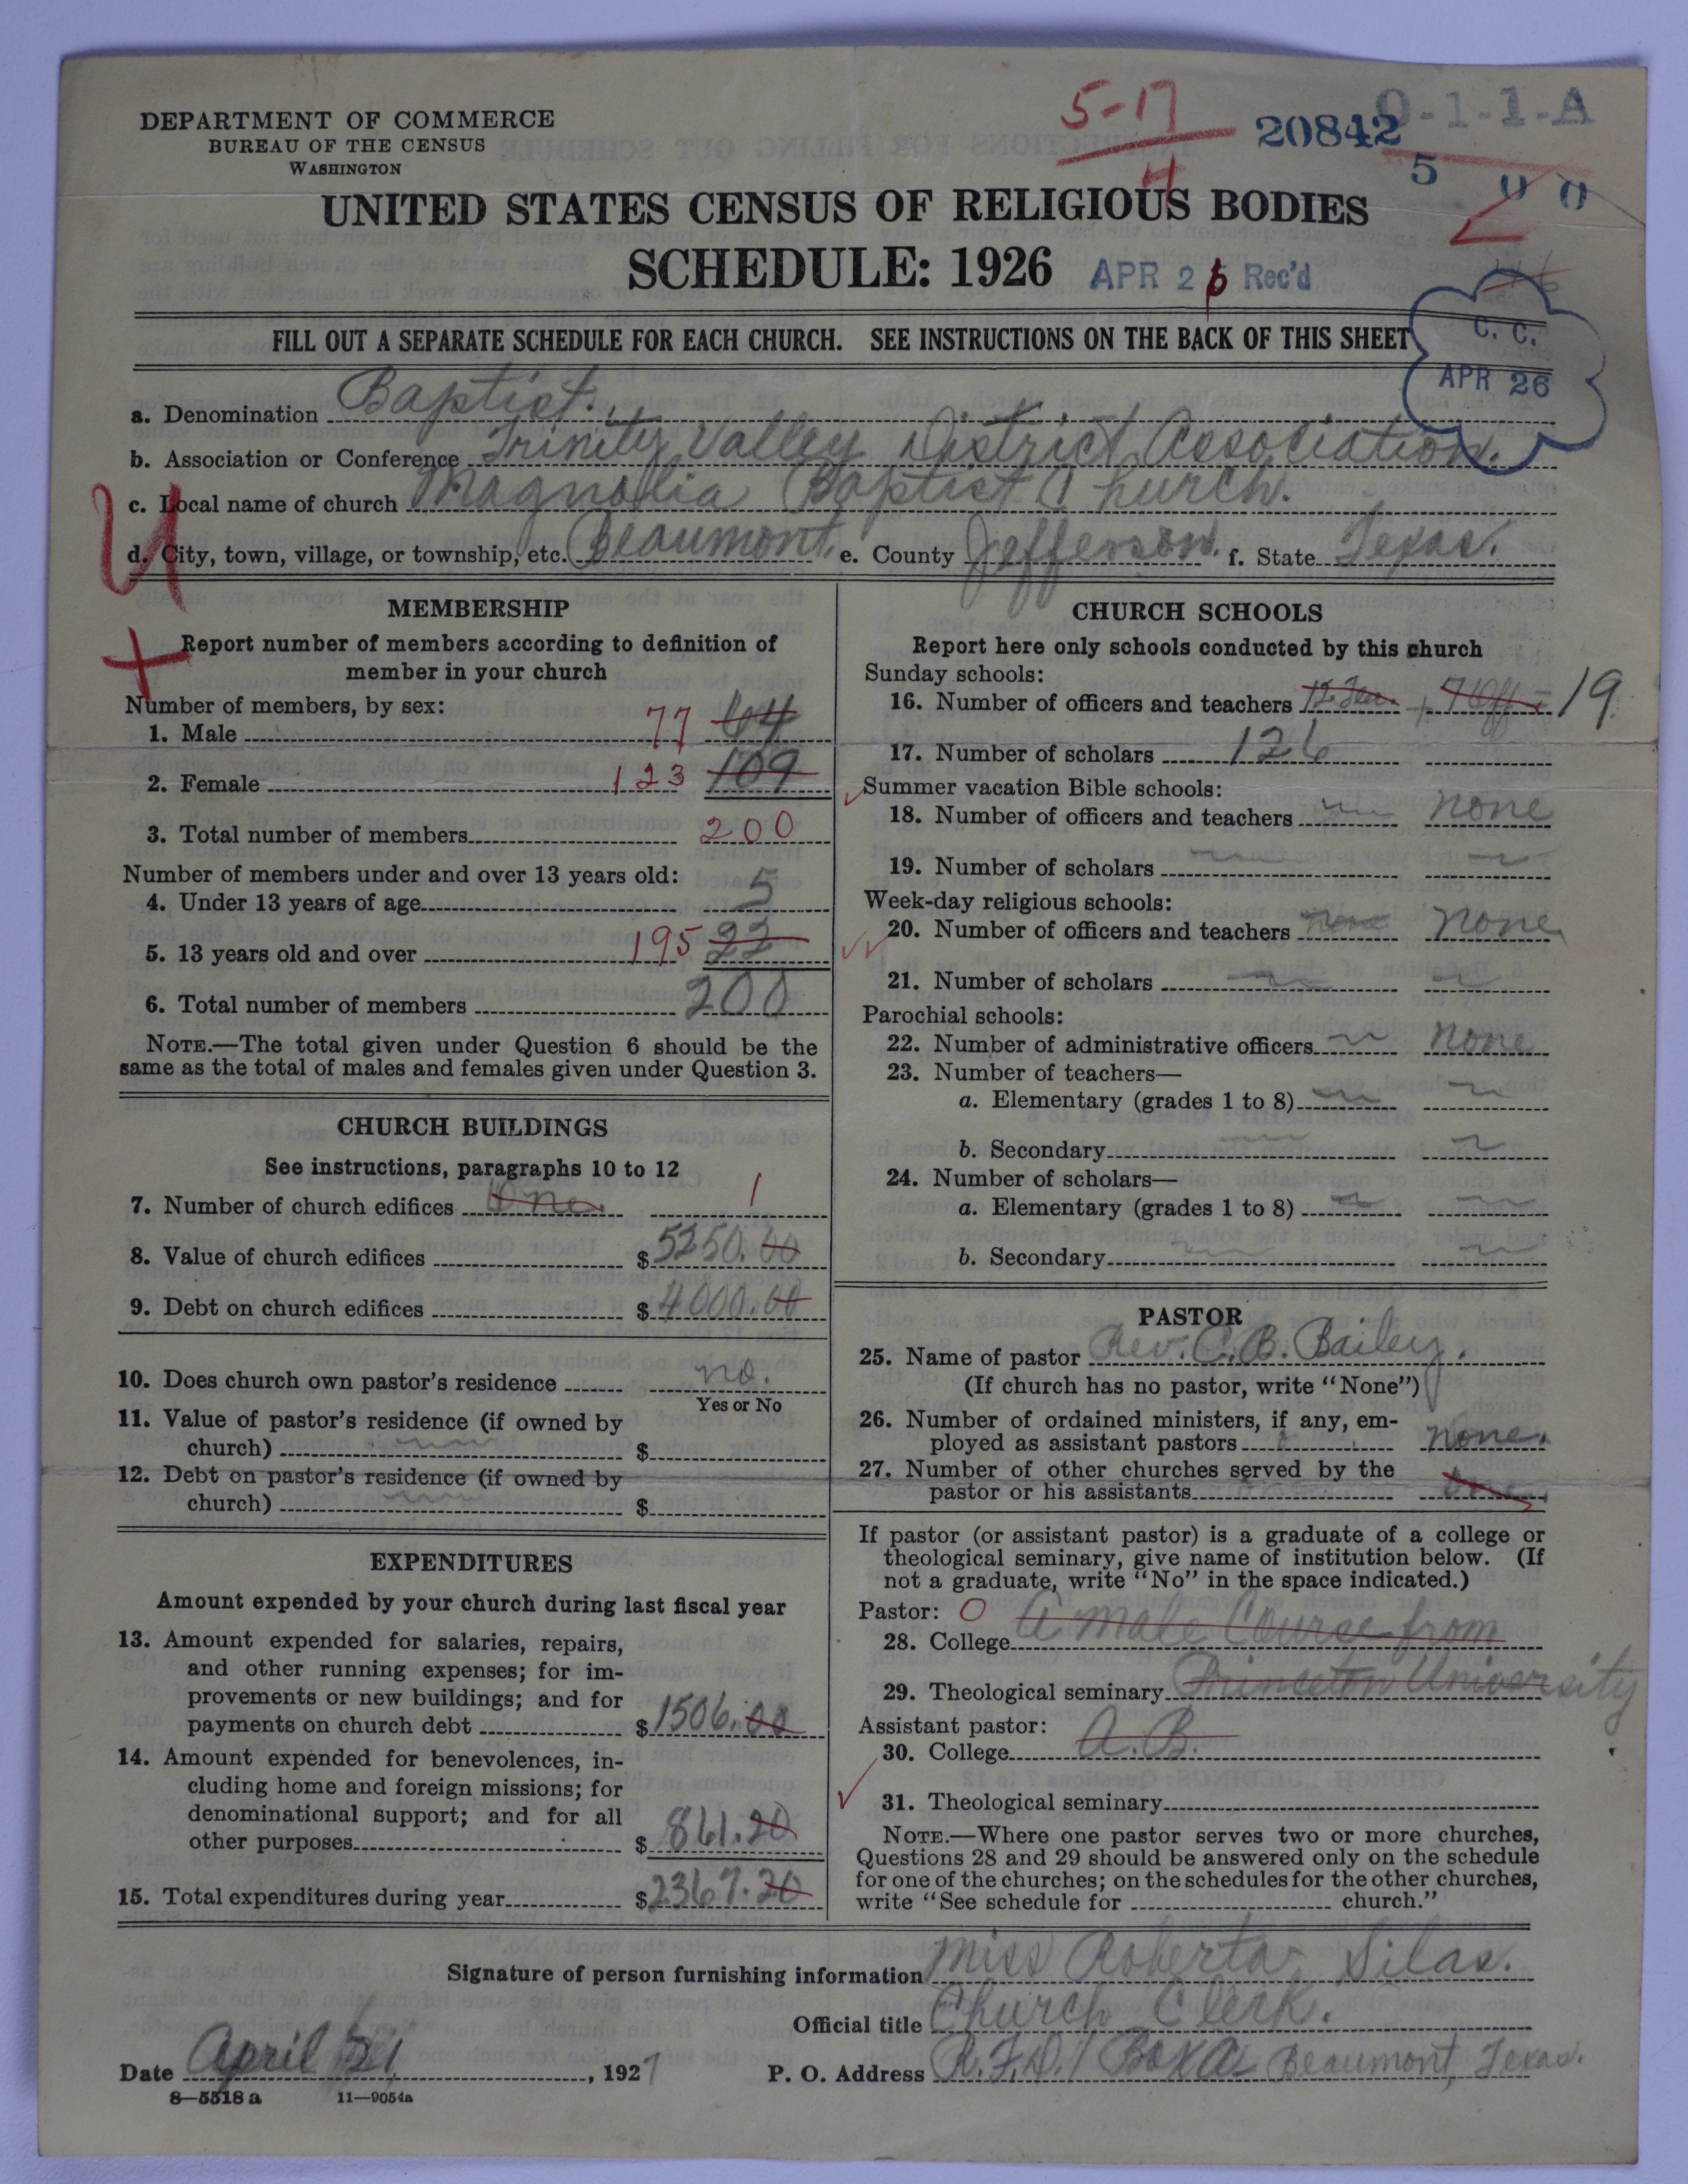 5-17
4
20842
0-1-1-A
5 0 0
DEPARTMENT OF COMMERCE
BUREAU OF THE CENSUS
WASHINGTON
UNITED STATES CENSUS OF RELIGIOUS BODIES
SCHEDULE: 1926
APR 26 Rec'd
C. C.
APR 26
FILL OUT A SEPARATE SCHEDULE FOR EACH CHURCH. SEE INSTRUCTIONS ON THE BACK OF THIS SHEET
a. Denomination Baptist.
b. Association or Conference Trinity Valley District Association.
c. Local name of church Magnolia Baptist Church.
d. City, town, village, or township, etc. Beaumont. e. County Jefferson. f. State Texas.
MEMBERSHIP
Report number of members according to definition of
member in your church
Number of members, by sex:
1. Male 77 64
2. Female 123 109
3. Total number of members 200
Number of members under and over 13 years old:
4. Under 13 years of age 5
5. 13 years old and over 195 22
6. Total number of members 200
NOTE.—The total given under Question 6 should be the
same as the total of males and females given under Question 3.
CHURCH BUILDINGS
See instructions, paragraphs 10 to 12
7. Number of church edifices One. 1
8. Value of church edifices $ 5250.00
9. Debt on church edifices $ 4000.00
10. Does church own pastor's residence no.
Yes or No
11. Value of pastor's residence (if owned by
church) $
12. Debt on pastor's residence (if owned by
church) $
EXPENDITURES
Amount expended by your church during last fiscal year
13. Amount expended for salaries, repairs,
and other running expenses; for im-
provements or new buildings; and for
payments on church debt $ 1506.00
14. Amount expended for benevolences, in-
cluding home and foreign missions; for
denominational support; and for all
other purposes $ 861.20
15. Total expenditures during year $ 2367.20
CHURCH SCHOOLS
Report here only schools conducted by this church
Sunday schools:
16. Number of officers and teachers 12 Tea. + 7 Off = 19.
17. Number of scholars 126
Summer vacation Bible schools:
18. Number of officers and teachers none
19. Number of scholars
Week-day religious schools:
20. Number of officers and teachers none none
21. Number of scholars
Parochial schools:
22. Number of administrative officers none
23. Number of teachers—
a. Elementary (grades 1 to 8)
b. Secondary
24. Number of scholars—
a. Elementary (grades 1 to 8)
b. Secondary
PASTOR
25. Name of pastor Rev. C. B. Bailey.
(If church has no pastor, write "None")
26. Number of ordained ministers, if any, em-
ployed as assistant pastors none.
27. Number of other churches served by the
pastor or his assistants
If pastor (or assistant pastor) is a graduate of a college or
theological seminary, give name of institution below. (If
not a graduate, write "No" in the space indicated.)
Pastor: 0
28. College A male Course from
29. Theological seminary Princeton University
Assistant pastor:
30. College A.B.
31. Theological seminary
NOTE.—Where one pastor serves two or more churches,
Questions 28 and 29 should be answered only on the schedule
for one of the churches; on the schedules for the other churches,
write "See schedule for church."
Signature of person furnishing information Miss Roberta Silas.
Official title Church Clerk.
Date April 21, 1927 P. O. Address R.F.D. 1 Box Beaumont, Texas.
8—5518 a 11—9054a